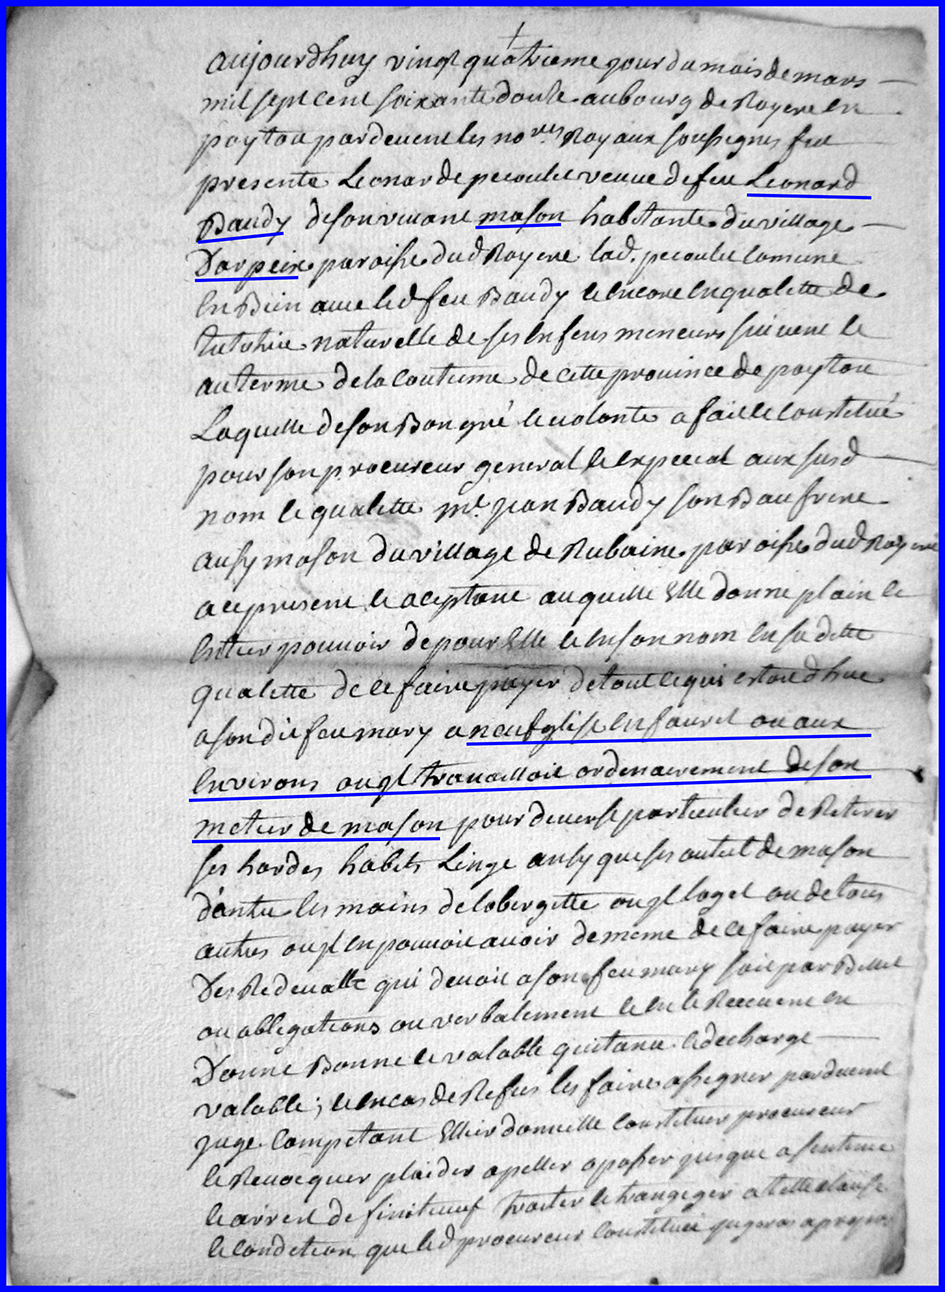 aujourdhuy vingt quatrieme jour du mois de mars
mil sept cent soixante douze au bourg de Royere en
poytou pardevent les no.res Royaux soussignes fut
presente Leonarde pecoulie veuve de feu Leonard
Baudy de son vivant mason habitante du village
Darpeix paroisse dud Royere lad. pecoulie comune
en Bien avec led feu Baudy et encore en qualette de
tutrice naturelle de ses enfens meneurs suivent le
au terme de la coutume de cette province de poytou
Laquelle de son Bon gré et volonte a fait et constitué
pour son procureur general et expecial aux susd
nom et qualette m.e jean Baudy son Baufrere
ausy mason du village de Rubaine paroisse dud Royere
a ce present et aceptant auquelle Elle donne plain et
entier pouvoir de pour Elle et en son nom en sa dette
qualette de ce faire payer de tout ce qui estoit dhue
a son dit feu mary a neufeglise en fauret ou aux
environs ou jl travailloit ordenairement de son
metier de mason pour deverse particulier de Retirer
ses hardes habits Linge ausy que ses outiel de mason
dantre les mains de lobergiste ou jl loget ou de tous
autres ou jl en pouvoit avoir de meme de ce faire payer
Des Redevable qui devoit a son feu mary soit par Billiet
ou obligations ou verbalement et en le Recevent en
Donne Bonne et valable quitance et decharge
valable ; et en cas de Refus les faire assigner pardevent
juge competant Ellire domeille constituer procureur
le Revocquer plaider apeller oposer jusque a sentence
et arrest definiteuf traiter et trangeger a telle clause
et condetion que led procureur constitué jugeras a propos